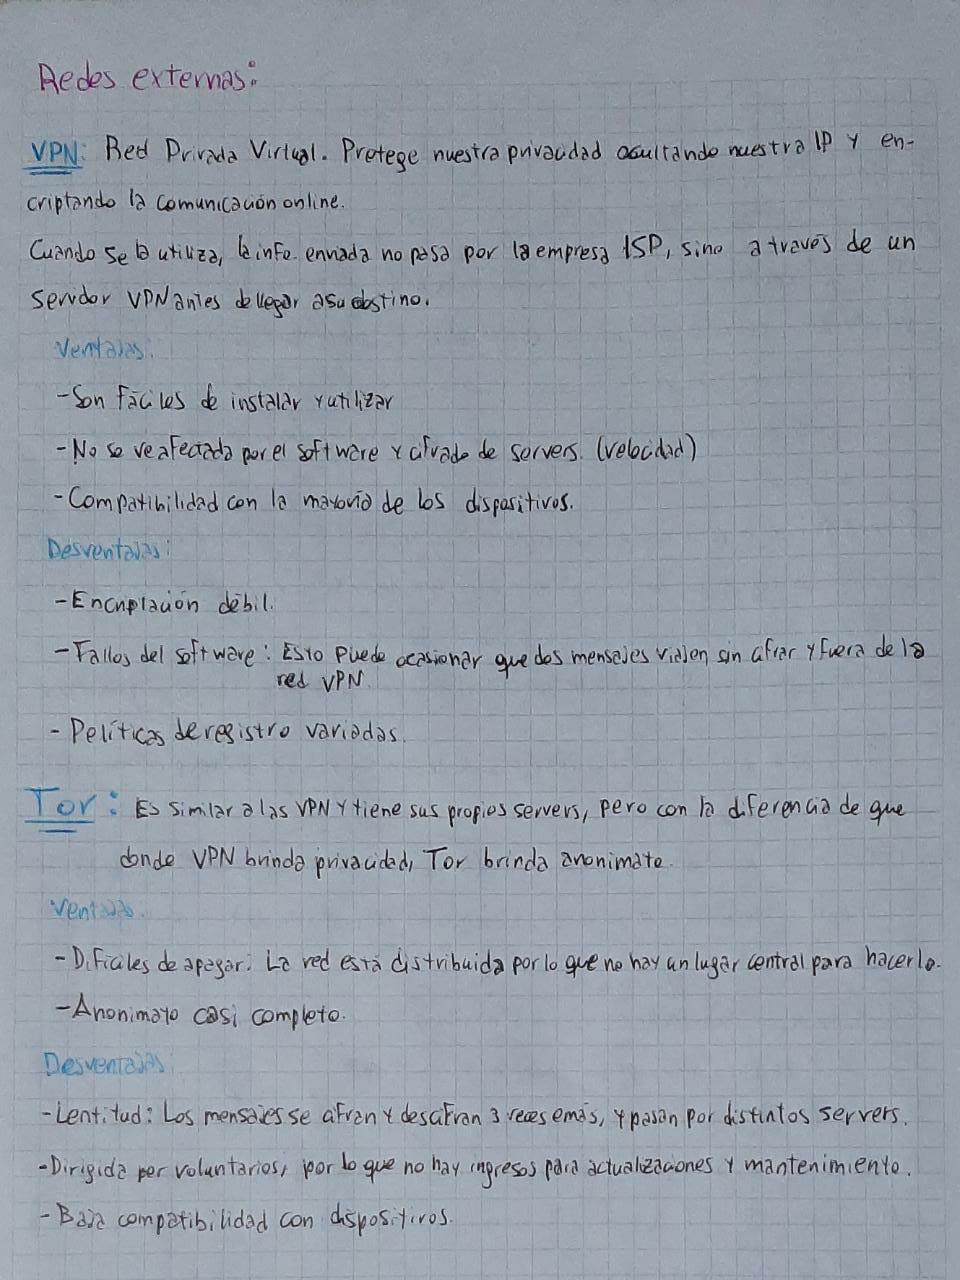 Redes externas:
VPN: Red Privada Virtual. Protege nuestra privacidad ocultando nuestra IP y en-
criptando la comunicación online.
Cuando se la utiliza, la info. enviada no pasa por la empresa ISP, sino a través de un
servidor VPN antes de llegar a su destino.
Ventajas:
-Son fáciles de instalar y utilizar
-No se ve afectada por el software y cifrado de servers. (velocidad)
-Compatibilidad con la mayoría de los dispositivos.
Desventajas:
-Encriptación débil.
-Fallos del software: Esto puede ocasionar que dos mensajes viajen sin cifrar y fuera de la
red VPN.
- Políticas de registro variadas.
Tor: Es similar a las VPN y tiene sus propios servers, pero con la diferencia de que
donde VPN brinda privacidad, Tor brinda anonimato.
Ventajas:
-Difíciles de apagar: La red está distribuida por lo que no hay un lugar central para hacerlo.
-Anonimato casi completo.
Desventajas:
-Lentitud: Los mensajes se cifran y descifran 3 veces o más, y pasan por distintos servers.
-Dirigida por voluntarios, por lo que no hay ingresos para actualizaciones y mantenimiento.
- Baja compatibilidad con dispositivos.